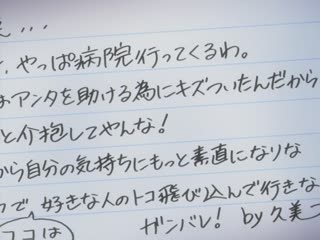 、やっぱ病院行ってくるわ。
アンタを助ける為にキズついたんだから
と介抱してやんな!
から自分の気持ちにもっと素直になりな
で好きな人のトコ飛び込んで行きな
ココは ガンバレ! by久美